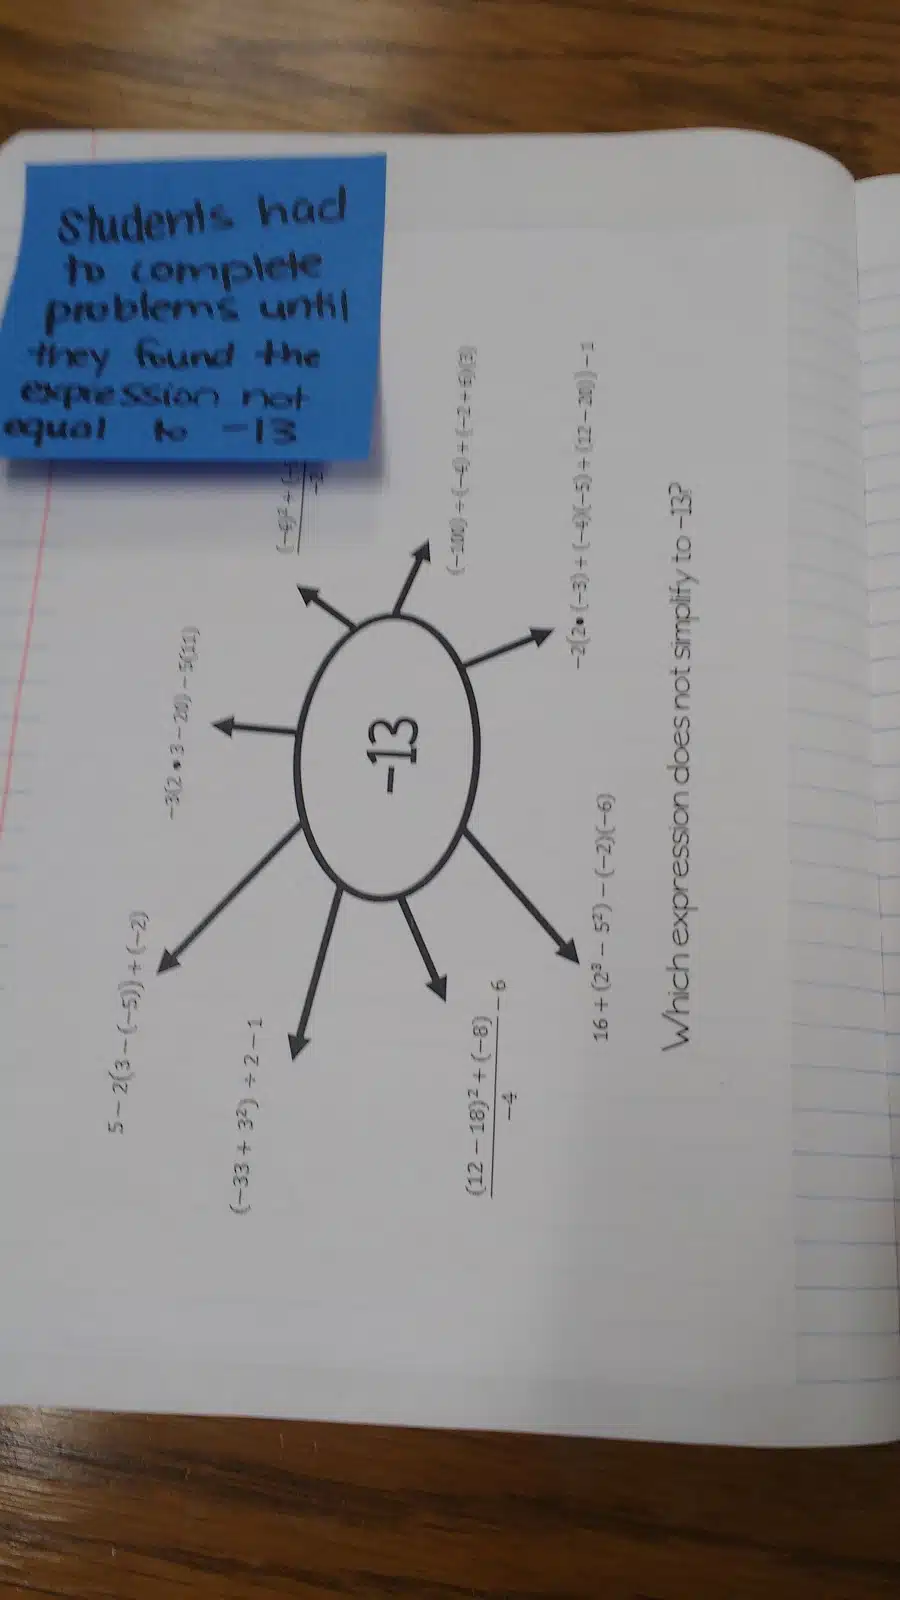 Students had
to complete
problems until
they found the
expression not
equal to -13
5 − 2(3 − (−5)) + (−2)
−3(2 • 3 − 20) − 5(11)
(−33 + 3²) ÷ 2 − 1
−13
(12 − 18)² + (−8)
−4
− 6
16 + (2³ − 5²) − (−2)(−6)
−2(2• (−3) + (−4)(−5) + (12 − 20)) − 1
Which expression does not simplify to −13?